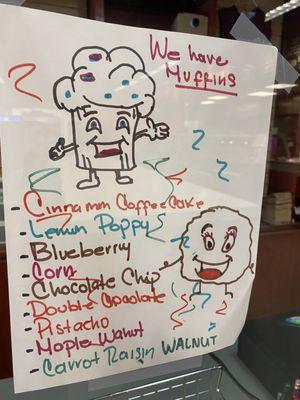 We have
Muffins
- Cinnamon Coffee Cake
- Lemon Poppy
- Blueberry
- Corn
- Chocolate Chip
- Double Chocolate
- Pistacho
- Maple Walnut
- Carrot Raisin WALNUT